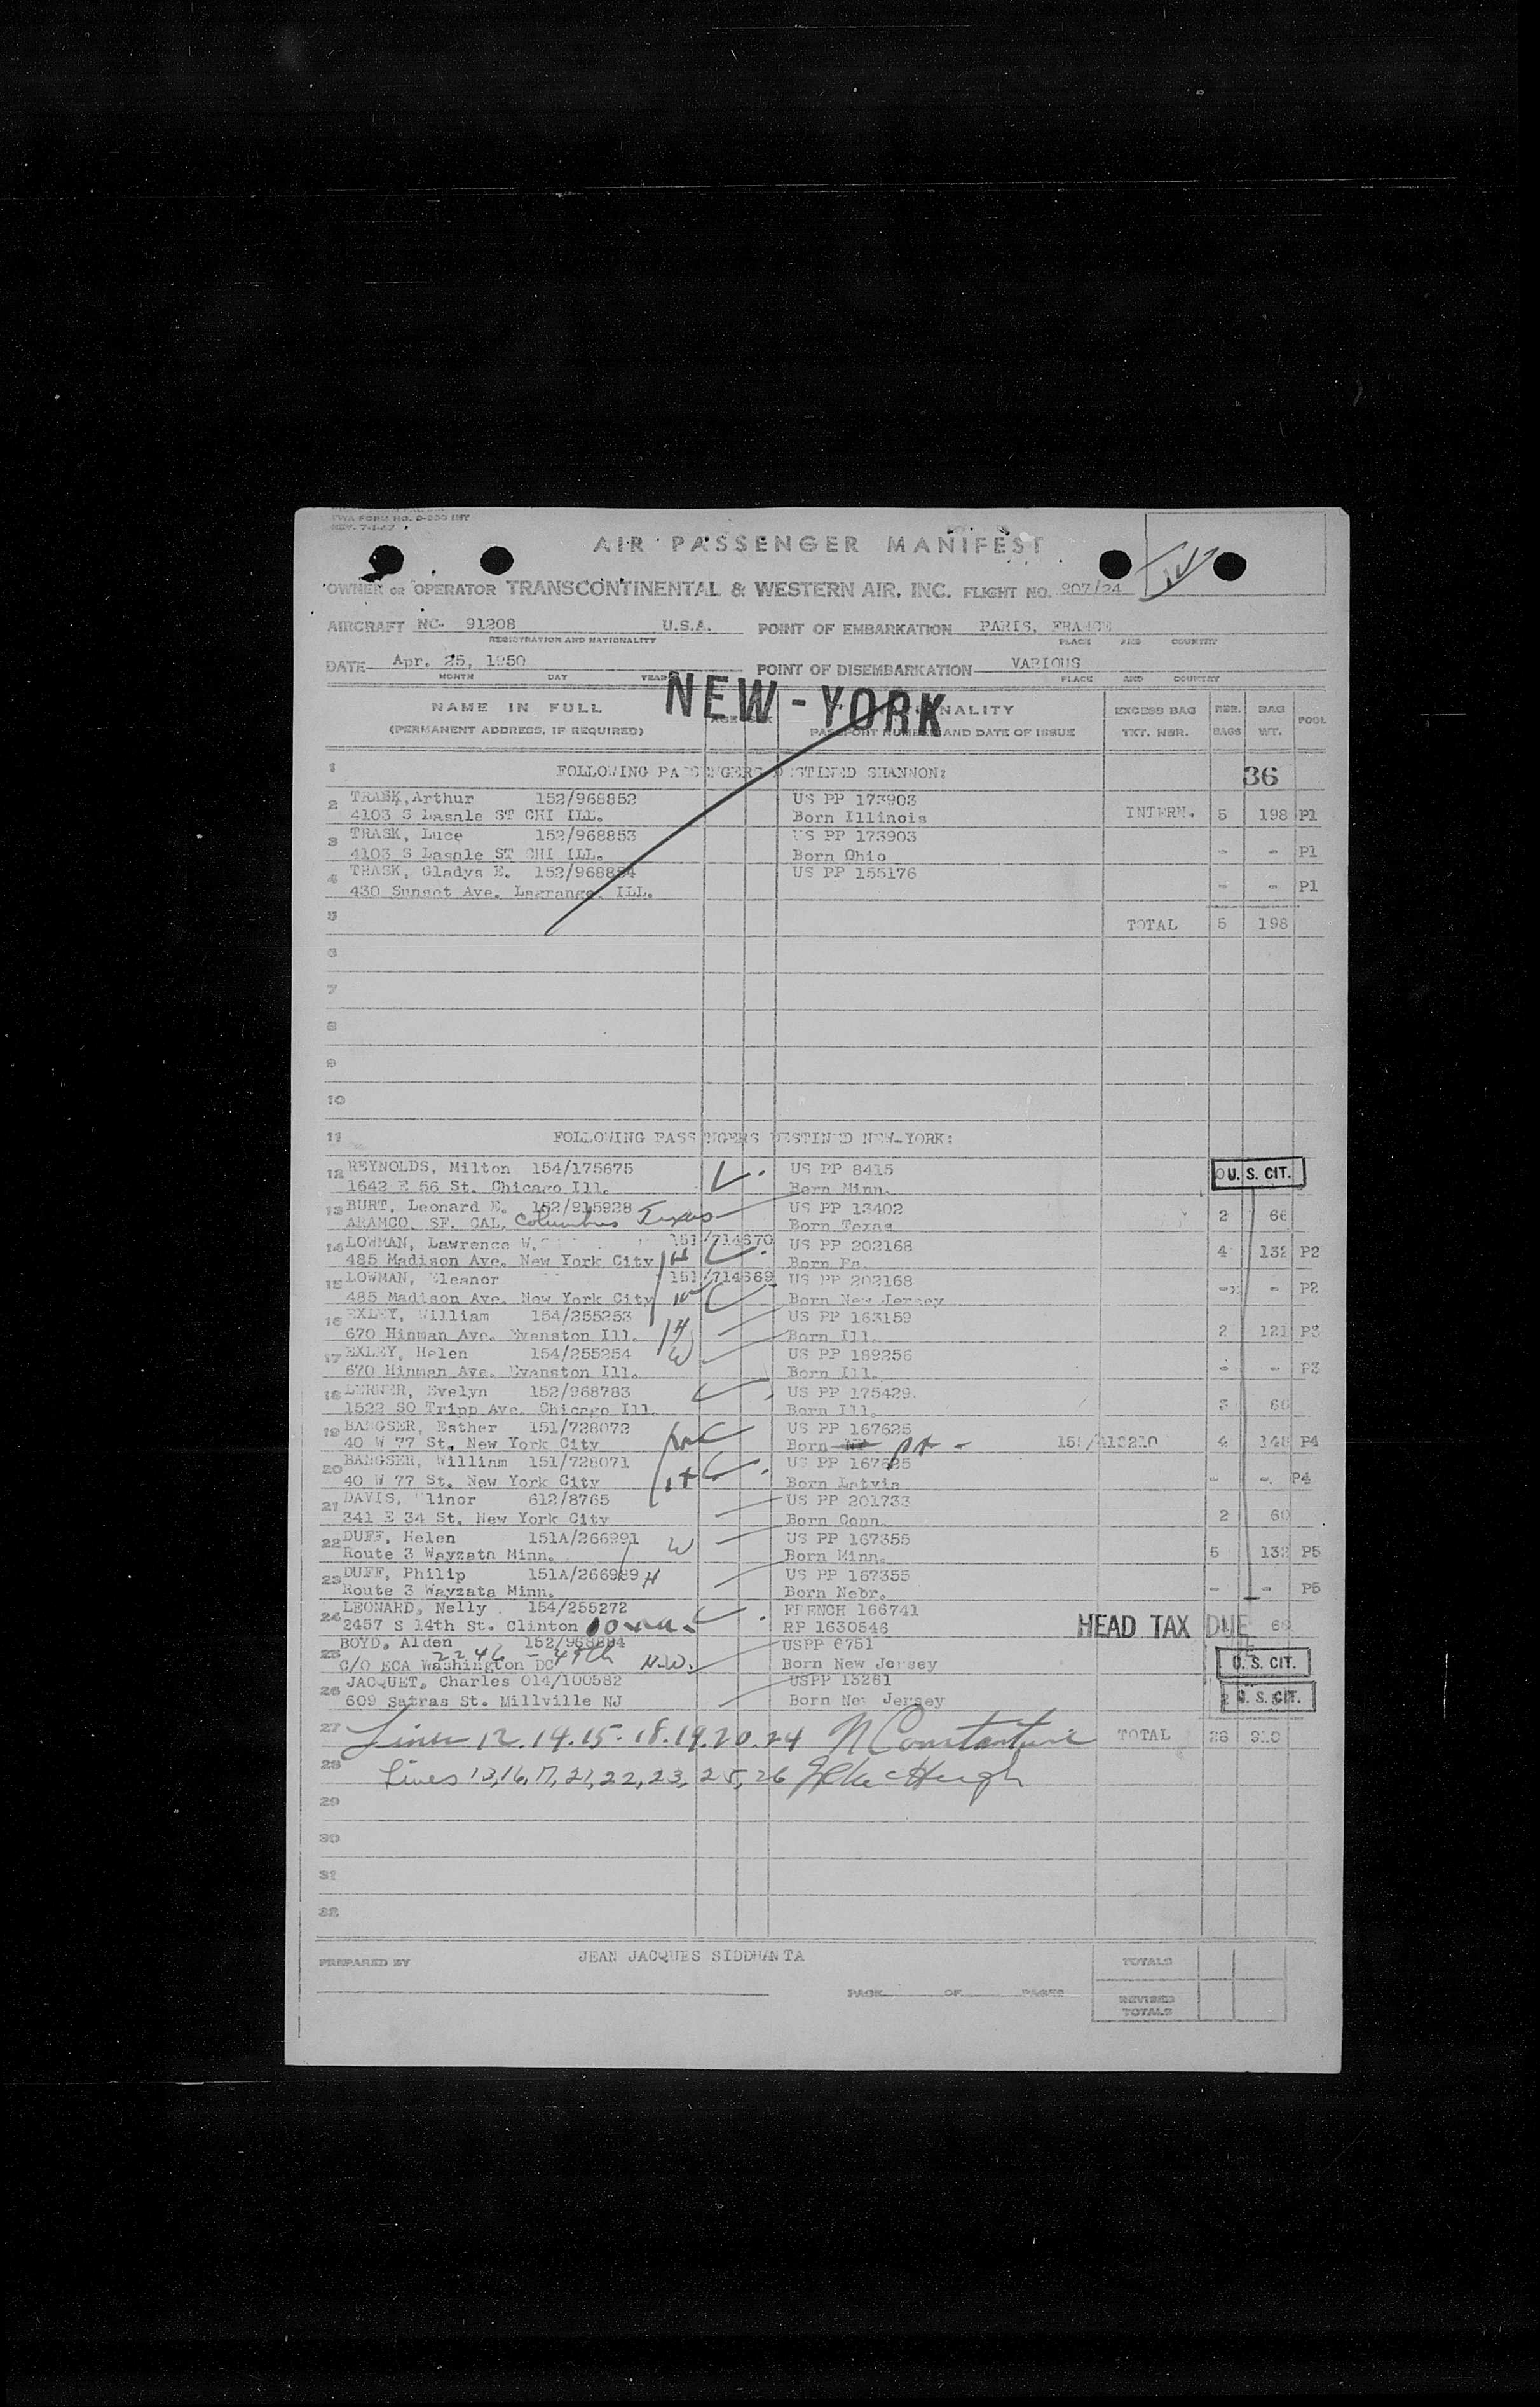 TWA FORM NO. 0-200 INT
REV. 7-1-47
AIR PASSENGER MANIFEST
OWNER OR OPERATOR TRANSCONTINENTAL & WESTERN AIR, INC. FLIGHT NO. 907/24
AIRCRAFT NC- 91208 U.S.A. POINT OF EMBARKATION PARIS, FRANCE
REGISTRATION AND NATIONALITY PLACE AND COUNTRY
DATE Apr. 25, 1950 POINT OF DISEMBARKATION VARIOUS
MONTH DAY YEAR PLACE AND COUNTRY
NEW-YORK
NAME IN FULL NALITY EXCESS BAG NBR. BAG
(PERMANENT ADDRESS, IF REQUIRED) AGE SEX PASSPORT NUMBER AND DATE OF ISSUE TKT. NBR. BAGS WT. POOL
1 FOLLOWING PASSENGERS DESTINED SHANNON: 36
2 TRASK, Arthur 152/968852 US PP 173903
4103 S Lasale ST CHI ILL. Born Illinois INTERN. 5 198 P1
3 TRASK, Luce 152/968853 US PP 173903
4103 S Lasale ST CHI ILL. Born Ohio - - P1
4 TRASK, Gladys E. 152/968854 US PP 155176
430 Sunset Ave. Lagrange, ILL. - - P1
5 TOTAL 5 198
6
7
8
9
10
11 FOLLOWING PASSENGERS DESTINED NEW-YORK:
12 REYNOLDS, Milton 154/175675 US PP 8415 U. S. CIT.
1642 E 56 St. Chicago Ill. Born Minn.
13 BURT, Leonard E. 152/915928 US PP 13402 2 66
ARAMCO. SF. CAL. Columbus Texas Born Texas
14 LOWMAN, Lawrence W. 151/714670 US PP 202168 4 132 P2
485 Madison Ave. New York City H Born Pa.
15 LOWMAN, Eleanor 151/714669 US PP 202168 - - P2
485 Madison Ave. New York City W Born New Jersey
16 EXLEY, William 154/255253 US PP 163159 2 121 P3
670 Hinman Ave. Evanston Ill. H Born Ill.
17 EXLEY, Helen 154/255254 W US PP 189256 - - P3
670 Hinman Ave. Evanston Ill. Born Ill.
18 LERNER, Evelyn 152/968783 US PP 175429. 3 66
1522 SO Tripp Ave. Chicago Ill. Born Ill.
19 BANGSER, Esther 151/728072 US PP 167625
40 W 77 St. New York City Born 4 148 P4
20 BANGSER, William 151/728071 US PP 167625
40 W 77 St. New York City H Born Latvia - - P4
21 DAVIS, Elinor 612/8765 US PP 201733 2 60
341 E 34 St. New York City Born Conn.
22 DUFF, Helen 151A/266991 W US PP 167355
Route 3 Wayzata Minn. Born Minn. 5 132 P5
23 DUFF, Philip 151A/266989 H US PP 167355
Route 3 Wayzata Minn. Born Nebr. - - P5
24 LEONARD, Nelly 154/255272 FRENCH 166741
2457 S 14th St. Clinton Iowa RP 1630546 HEAD TAX DUE 66
25 BOYD, Alden 152/968894 USPP 6751
2246 - 49th N.W.
C/O ECA Washington DC Born New Jersey U. S. CIT.
26 JACQUET, Charles 014/100582 USPP 13261
609 Satras St. Millville NJ Born New Jersey U. S. CIT.
27 Lines 12.14.15.18.19.20.24 N Constantine TOTAL 26 910
28 Lines 13,16,17,21,22,23,25,26
29
30
31
32
PREPARED BY JEAN JACQUES SIDDHANTA TOTALS
PAGE OF PAGES REVISED TOTALS